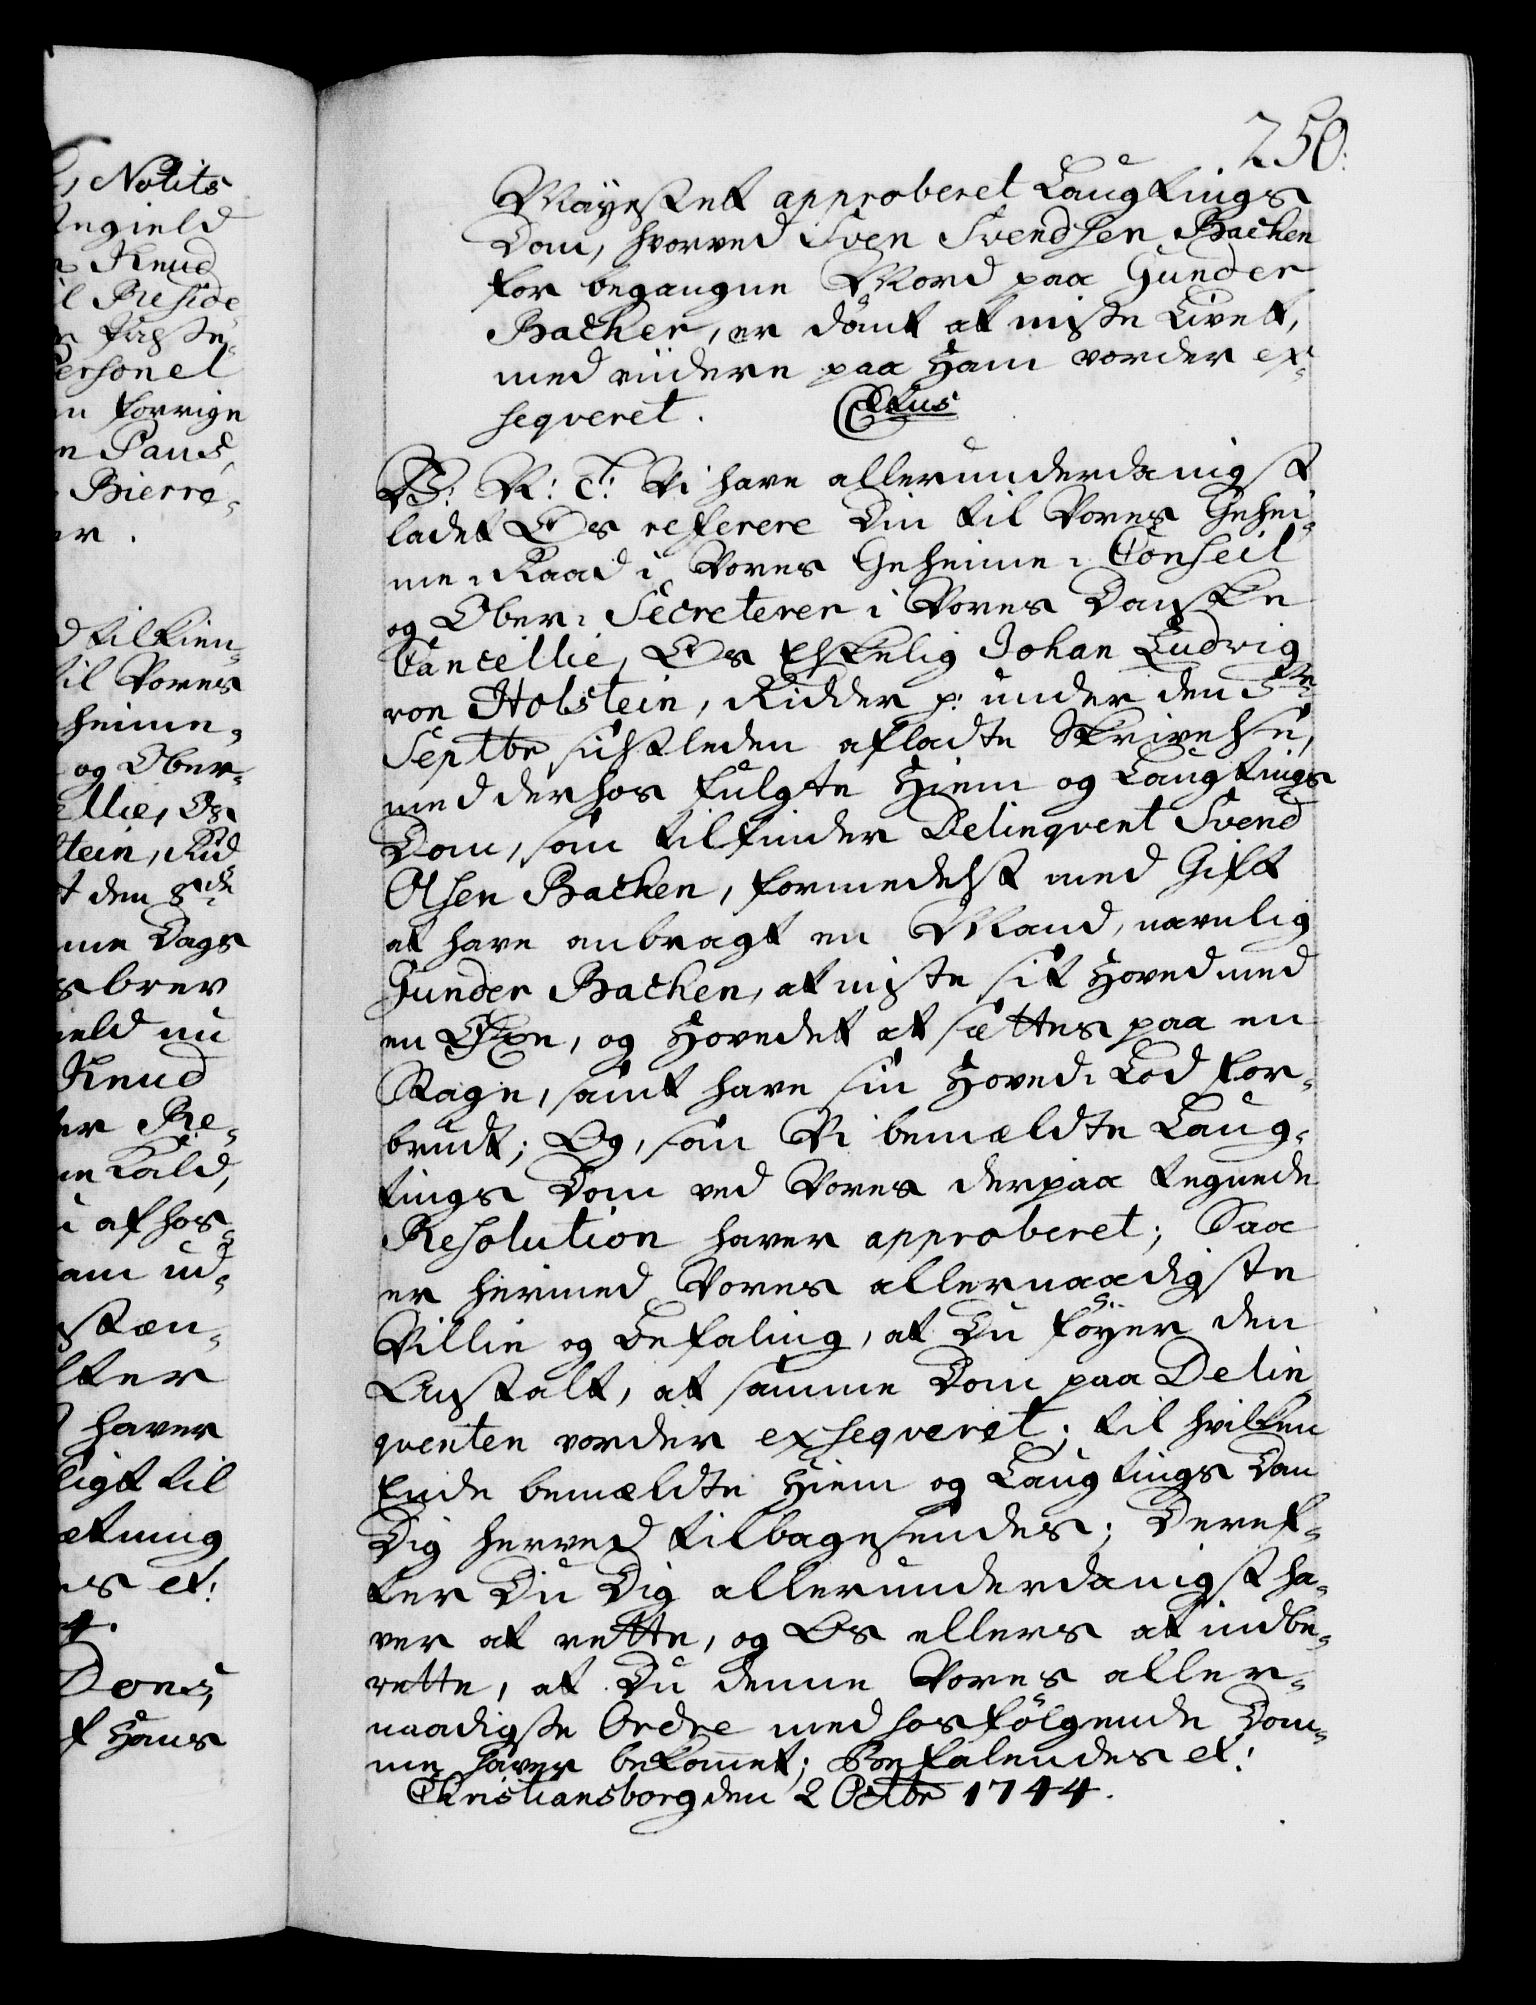 250.
Mayestet approberet Laugtings
Dom, hvorved Sven Svendsen Bachen
for begangne Mord paa Gunder
Bachen, er dömt at miste Livet,
med viidere paa Ham vorder ex-
seqveret.
C. 6. V: R: T: Vi have allerunderdanigst
ladet Os referere Din til Vores Gehei-
me-Raad i Vores Geheime-Conseil
og Ober-Secreterer i Vores Danske
Cancellie, Os Elskelig Johan Ludvig
von Holstein, Ridder p: under den 5te
Septbr sidstleden afladte Skrivelse,
med derhos fulgte Hiem og Laugtings
Dom, som tilfinder Delinqvent Svend
Olsen Bachen, formedelst med Gift
at have ombragt en Mand, navnlig
Gunder Bachen, at miste sit Hoved med
en Øxe, og Hovedet at sættes paa en
Stage, samt have sin Hoved-Lod for-
brudt; Og, som Vi bemældte Laug-
tings Dom ved Vores derpaa tegnede
Resolution haver approberet; Saa
er hermed Vores allernaadigste
Villie og Befaling, at Du föyer den
Anstalt, at samme Dom paa Delin
qventen vorder exseqveret; til hvilken
Ende bemældte Hiem og Laugtings Dom
Dig herved tilbagesendes; Deref-
ter Du Dig allerunderdanigst ha-
ver at rette, og Os ellers at indbe-
rette, at Du denne Vores aller-
naadigste Ordre med hosfölgende Dom-
me haver bekommet; Befalendes et:
Christiansborg den 2 Octbr 1744.
Notits
Knud
Preside
Personel
forrige
Paus,
Bierre-
tilkien-
til Vores
heime-
og Ober-
ellie, Os
stein, Rid
den 8de
Dags
brev
nu
Knud
Re-
Kald,
af hos-
ud-
haver
ligt til
et:
4.
Dons,
Hans